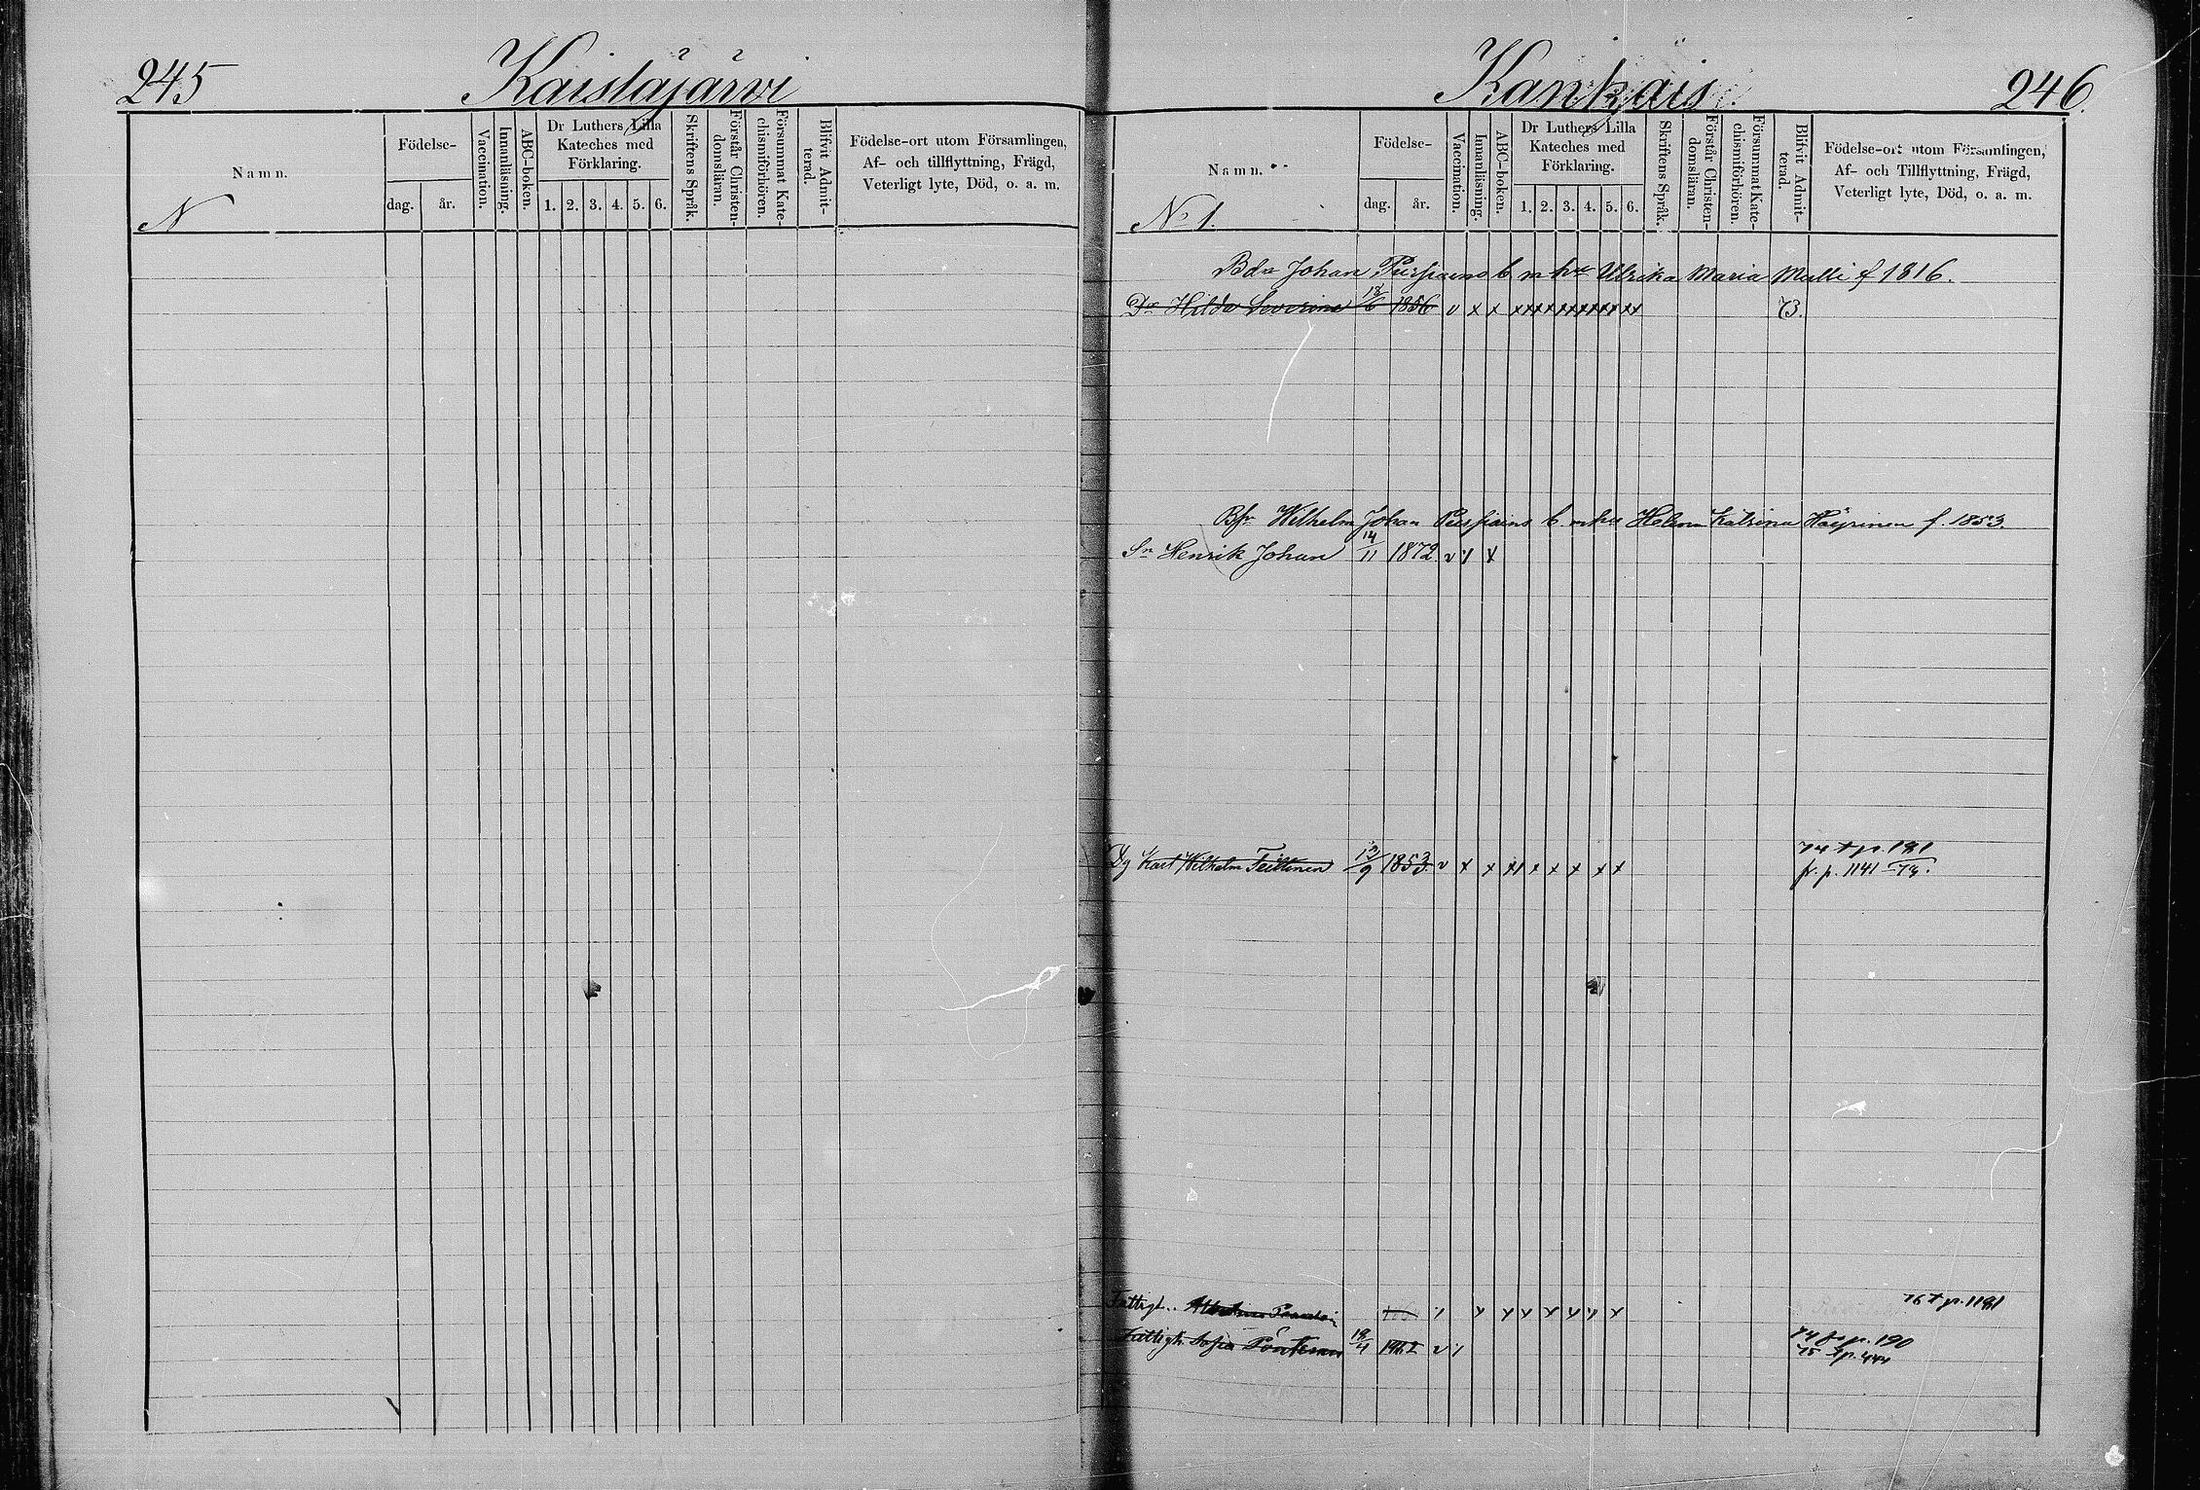 245
Kaistajärvi
Namn.
Födelse-
dag.
år.
Vaccination.
Innanläsning.
ABC-boken.
Dr Luthers Lilla
Kateches med
Förklaring.
1. 2. 3. 4. 5. 6.
Skriftens Språk.
Förstår Christen-
domsläran.
Försummat Kate-
chismiförhören.
Blifvit Admit-
terad.
Födelse-ort utom Församlingen,
Af- och tillflyttning, Frägd,
Veterligt lyte, Död, o. a. m.
N
Kankais.
246.
Namn.
Födelse-
dag.
år.
Vaccination.
Innanläsning.
ABC-boken.
Dr Luthers Lilla
Kateches med
Förklaring.
1. 2. 3. 4. 5. 6.
Skriftens Språk.
Förstår Christen-
domsläran.
Försummat Kate-
chismiförhören.
Blifvit Admit-
terad.
Födelse-ort utom Församlingen,
Af- och Tillflyttning, Frägd,
Veterligt lyte, Död, o. a. m.
No 1.
Bd Johan b m hu Ulrika Maria Mulli f 1816.
Dr Hilda Severina 18/6 1856 v x x xx xx xx xx xx xx 73.
Wilhelm Johan b. m hu Helena Katrina Häyrinen f. 1853.
Sn Henrik Johan 14/11 1872. v
Dg Karl Wilhelm Teittinen /9 1853. v x x x x x x x x
74 t p. 181
fr. p. 1141
Fattigh. x x x x x x
76 t p. 1181
Fattigh. Sofia
74 fr p. 190
75 t p. 444